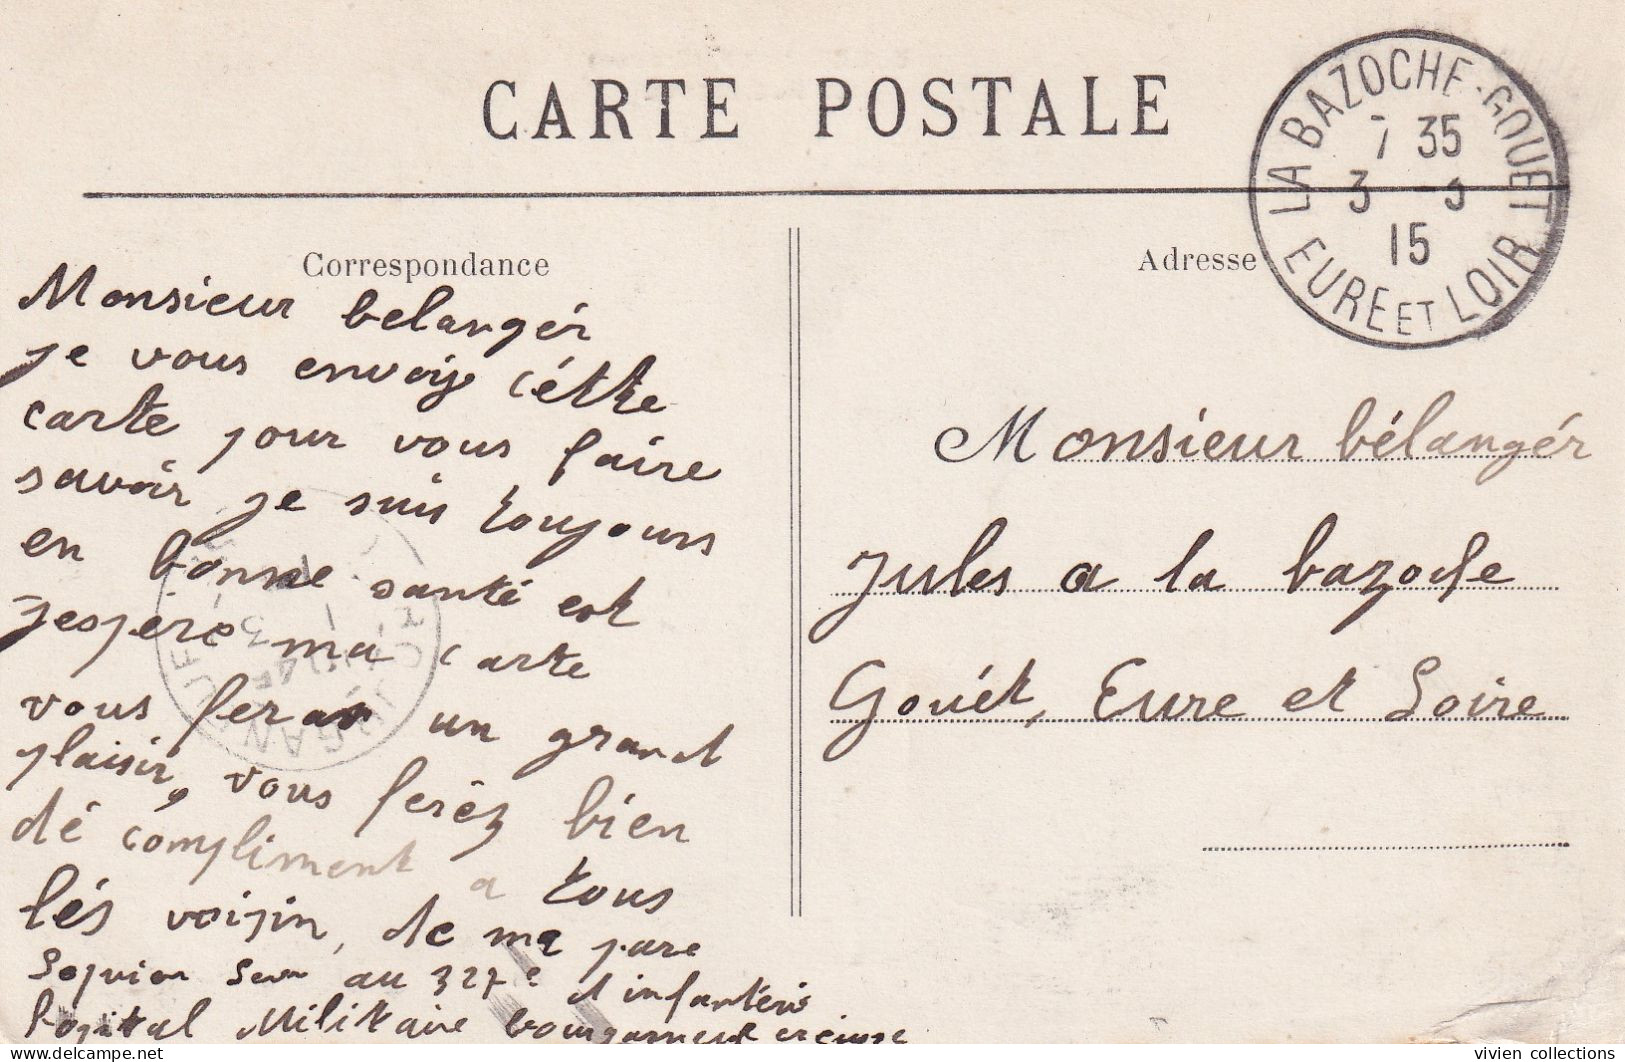 CARTE POSTALE
LA BAZOCHE-GOUET
7 35
3 9
15
EURE ET LOIR
Correspondance
Monsieur belangér
je vous envoije cétte
carte pour vous faire
savoir je suis toujours
en bonne santé est
jespére ma carte
vous feras un grand
plaisir, vous feréz bien
dé compliment a tous
lés voisin, de ma pare
au 327e d infanterie
hopital Militaire bourganeuf creuse
Adresse
Monsieur bélangér
Jules a la bazoche
Gouét, Eure et Loire
vivien collections